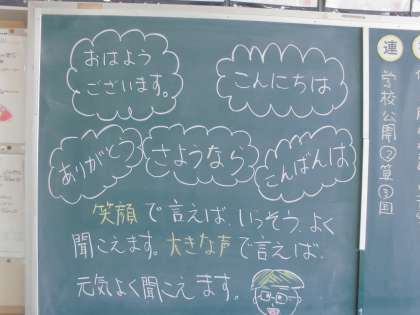 おはよう
ございます。
こんにちは
ありがとう
さようなら
こんばんは
笑顔で言えば、いっそう、よく
聞こえます。大きな声で言えば、
元気よく聞こえます。
連
学校公開②算③国